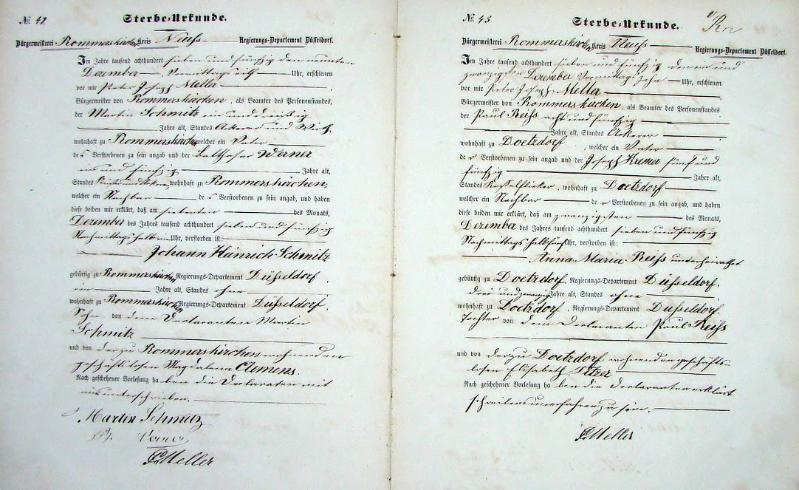 № 42
Sterbe-Urkunde.
Bürgermeisterei Rommerskirchen Kreis Neuß Regierungs-Departement Düsseldorf.
Im Jahre tausend achthundert sieben und fünfzig den neunten
Dezember Vormittags Uhr, erschienen
vor mir Peter Joseph Meller
Bürgermeister von Rommerskirchen, als Beamter des Personenstandes,
der Martin Schmitz ein und dreißig
Jahre alt, Standes Ackerer und Wirth,
wohnhaft zu Rommerskirchen welcher ein Vater
des Verstorbenen zu sein angab und der Balthasar Werner
und fünfzig Jahre alt,
Standes wohnhaft zu Rommerskirchen,
welcher ein Nachbar des Verstorbenen zu sein angab, und haben
diese beiden mir erklärt, daß am siebenten des Monats,
Dezember des Jahres tausend achthundert sieben und fünfzig
Nachmittags halb Uhr, verstorben ist:
Johann Heinrich Schmitz
gebürtig zu Rommerskirchen Regierungs-Departement Düsseldorf.
ein Jahre alt, Standes ohne
wohnhaft zu Rommerskirchen Regierungs-Departement Düsseldorf.
Sohn von dem Declaranten Martin
Schmitz
und von der zu Rommerskirchen wohnenden
geschäftslosen Magdalena Clemens.
Nach geschehener Vorlesung haben die Declaranten mit
uns unterschrieben.
Martin Schmitz
Werner
PMeller
№ 43
Sterbe-Urkunde.
Bürgermeisterei Rommerskirchen Kreis Neuß Regierungs-Departement Düsseldorf.
Im Jahre tausend achthundert sieben und fünfzig den ein und
zwanzigsten Dezember Vormittags zehn Uhr, erschienen
vor mir Peter Joseph Meller
Bürgermeister von Rommerskirchen, als Beamter des Personenstandes,
der Paul Reiß acht und fünfzig
Jahre alt, Standes Ackerer
wohnhaft zu Doetzdorf, welcher ein Vater
der Verstorbenen zu sein angab und der Joseph Kremer fünf und
fünfzig Jahre alt,
Standes wohnhaft zu Doetzdorf
welcher ein Nachbar der Verstorbenen zu sein angab, und haben
diese beiden mir erklärt, daß am zwanzigsten des Monats,
Dezember des Jahres tausend achthundert sieben und fünfzig
Nachmittags halb fünf Uhr, verstorben ist:
Anna Maria Reiß unverheirathet
gebürtig zu Doetzdorf, Regierungs-Departement Düsseldorf
drei und zwanzig Jahre alt, Standes ohne
wohnhaft zu Doetzdorf, Regierungs-Departement Düsseldorf
Tochter von dem Declaranten Paul Reiß
und von der zu Doetzdorf wohnenden geschäfts-
losen Elisabeth
Nach geschehener Vorlesung haben die Declaranten erklärt
schreibens unerfahren zu sein.
PMeller